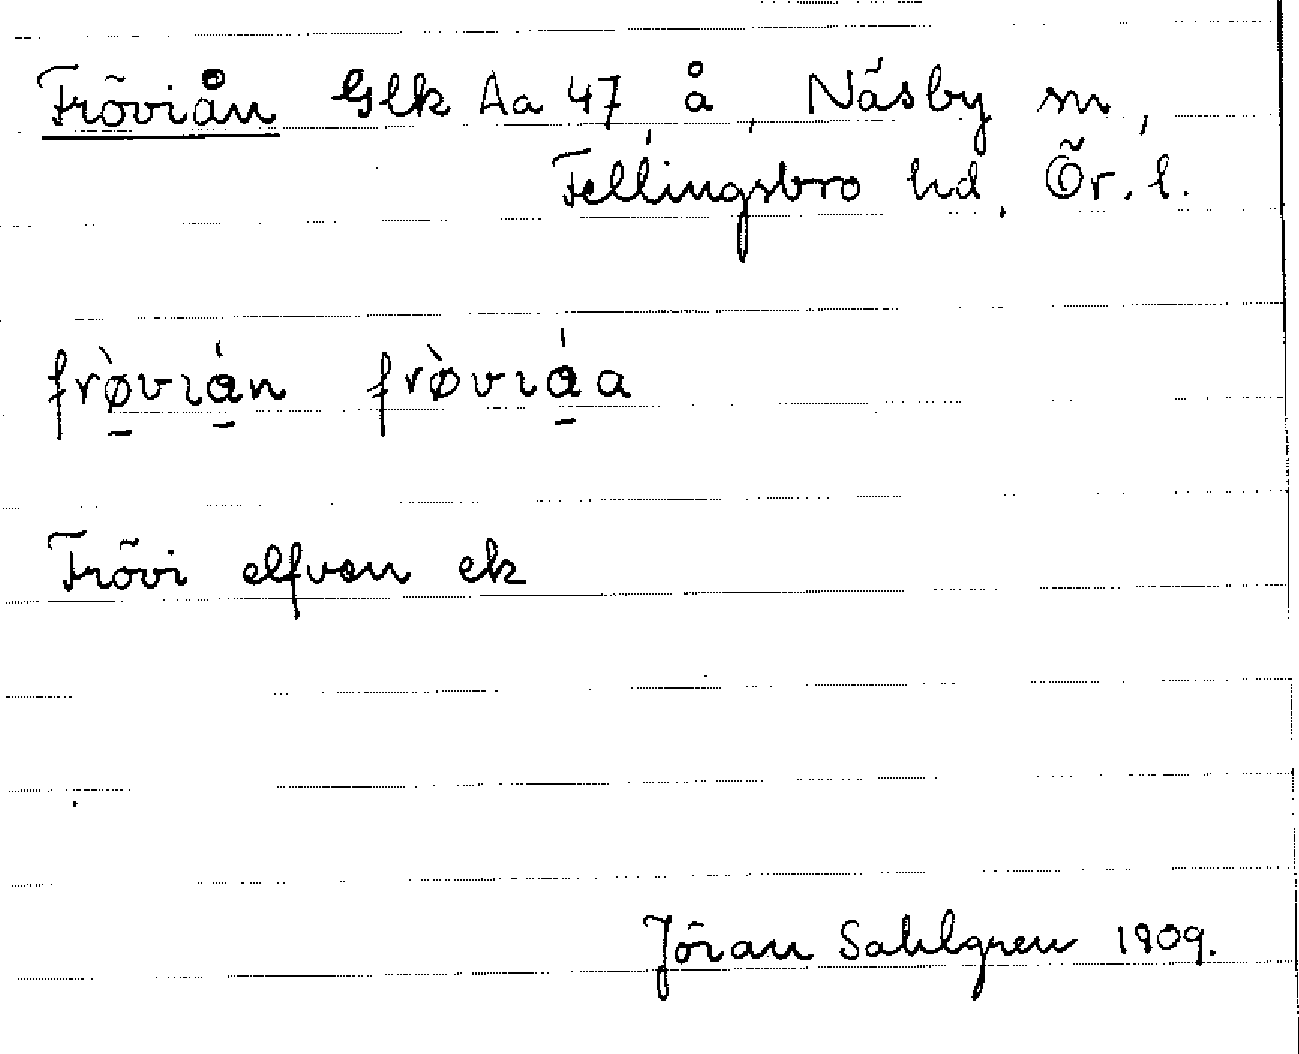 Fröviån Glk Aa 47 å, Näsby sn,
Fellingsbro hd, Ör. l.
frø̀vɩán frø̀vɩáa
Frövi elfven ek
Jöran Sahlgren 1909.